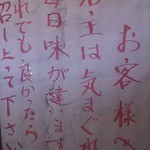 お客様へ
店主は気まぐれ
毎日味が違います
それでも良かったら
召し上って下さい